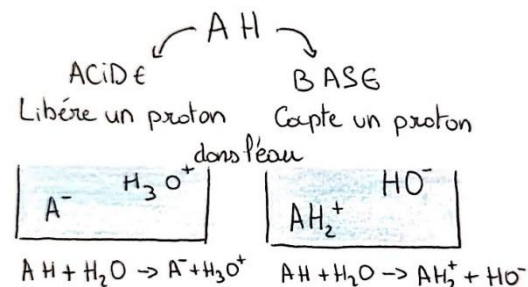 AH
ACIDE BASE
Libére un proton Capte un proton
dans l'eau
A⁻ H₃O⁺ AH₂⁺ HO⁻
AH + H₂O → A⁻ + H₃O⁺ AH + H₂O → AH₂⁺ + HO⁻